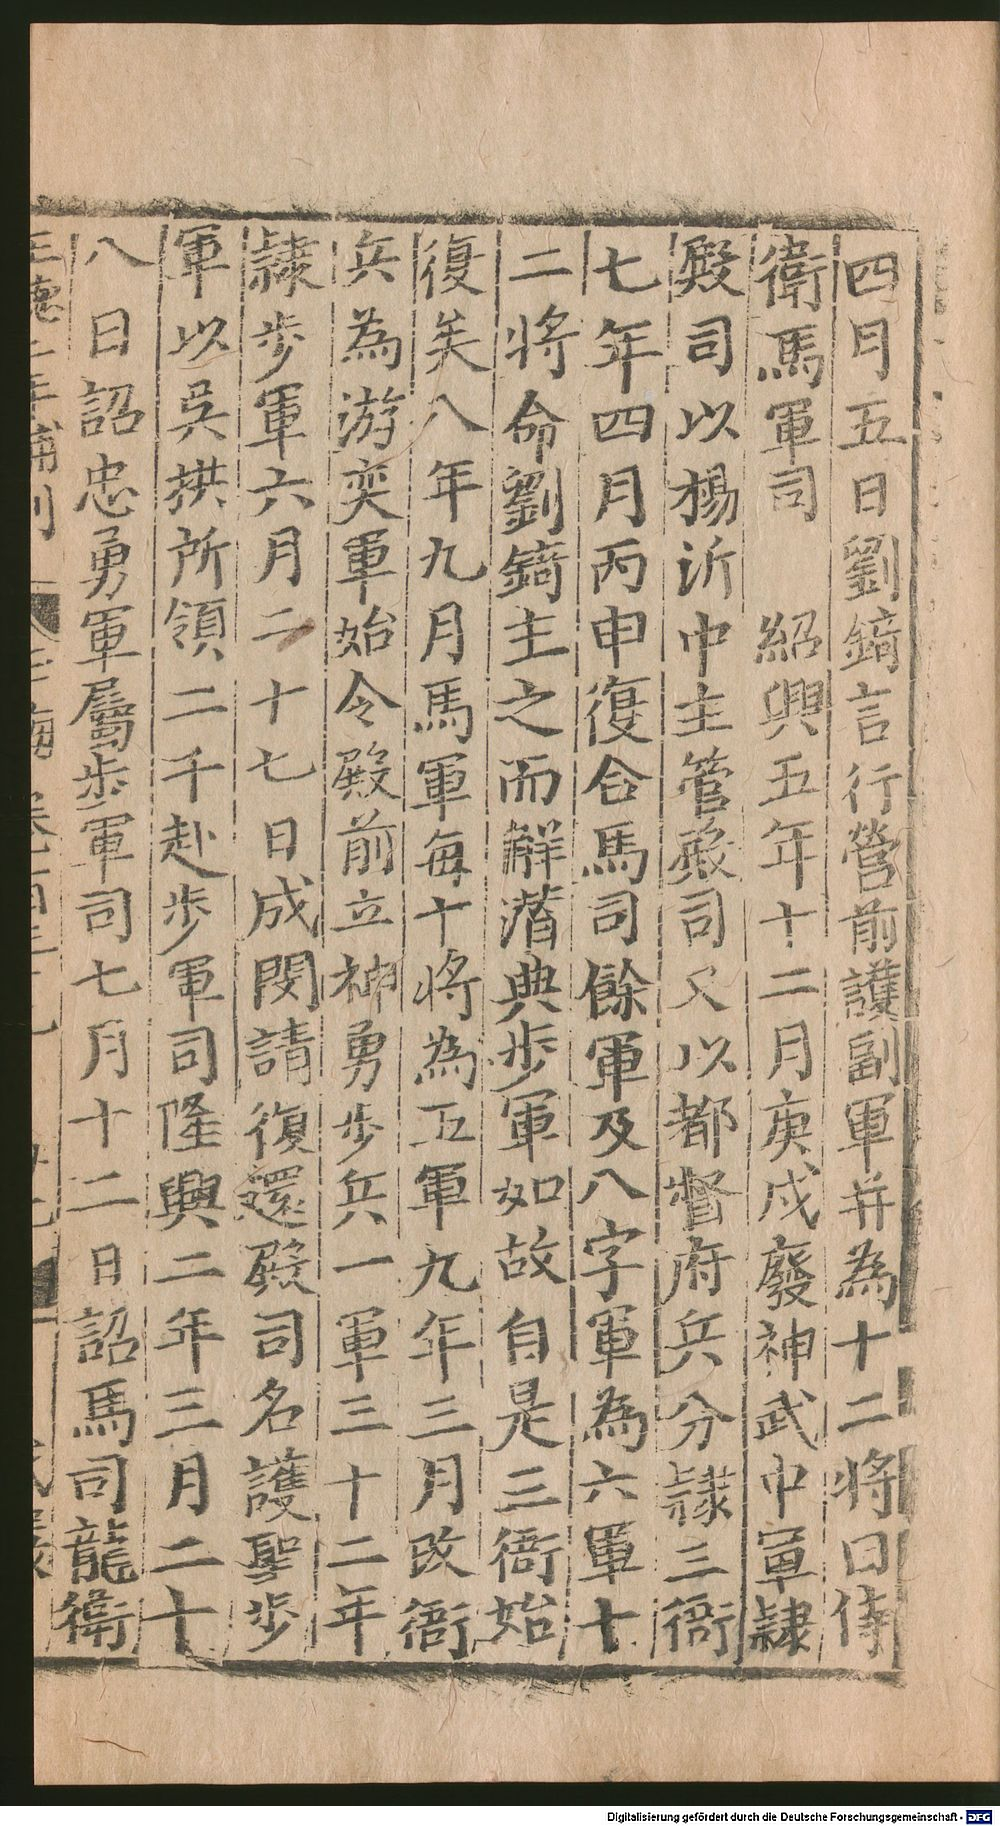 四月五日劉錡言行營前護副軍并為十二將曰侍
衛馬軍司　紹興五年十二月庚戌廢神武中軍隸
殿司以楊沂中主管殿司又以都督府兵分隸三衙
七年四月丙申復合馬司餘軍及八字軍為六軍十
二將命劉錡主之而解潛典步軍如故自是三衙始
復矣八年九月馬軍每十將為五軍九年三月改衙
兵為游奕軍始令殿前立神勇步兵一軍三十二年
隸步軍六月二十七日成閔請復還殿司名護聖步
軍以吳拱所領二千赴步軍司隆興二年三月二十
八日詔忠勇軍屬步軍司七月十二日詔馬司龍衛
Digitalisierung gefördert durch die Deutsche Forschungsgemeinschaft - DFG